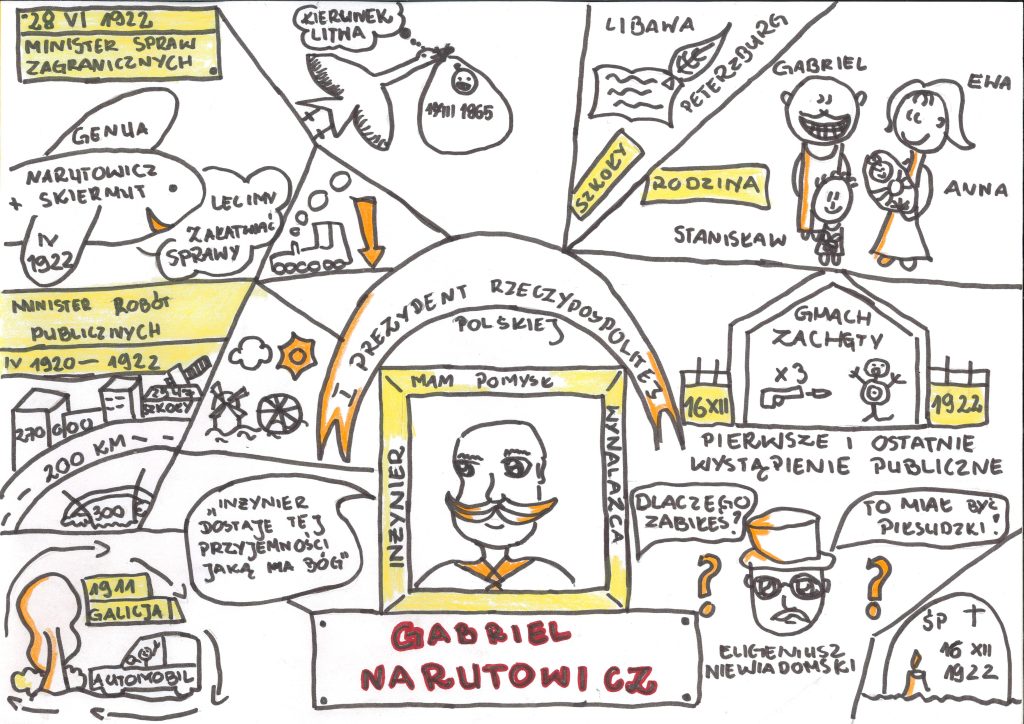 28 VI 1922
MINISTER SPRAW
ZAGRANICZNYCH
GENUA
NARUTOWICZ
+ SKIERMUT
IV
1922
LECIMY
ZAŁATWIAĆ
SPRAWY
KIERUNEK
LITWA
1865
LIBAWA
PETERZBURG
SZKOŁY
RODZINA
GABRIEL
EWA
ANNA
STANISŁAW
MINISTER ROBÓT
PUBLICZNYCH
IV 1920 — 1922
270 000
2547
SZKOŁY
200 KM
300
I PREZYDENT RZECZYPOSPOLITEJ
POLSKIEJ
MAM POMYSŁ
INŻYNIER
WYNALAZCA
GMACH
ZACHĘTY
X3
16 XII
1922
PIERWSZE I OSTATNIE
WYSTĄPIENIE PUBLICZNE
„INŻYNIER
DOSTAJE TEJ
PRZYJEMNOŚCI
JAKĄ MA BÓG"
DLACZEGO
ZABIŁEŚ?
TO MIAŁ BYĆ
PIŁSUDZKI!
? ?
ELIGENIUSZ
NIEWIADOMSKI
1911
GALICJA
AUTOMOBIL
GABRIEL
NARUTOWICZ
ŚP
16 XII
1922